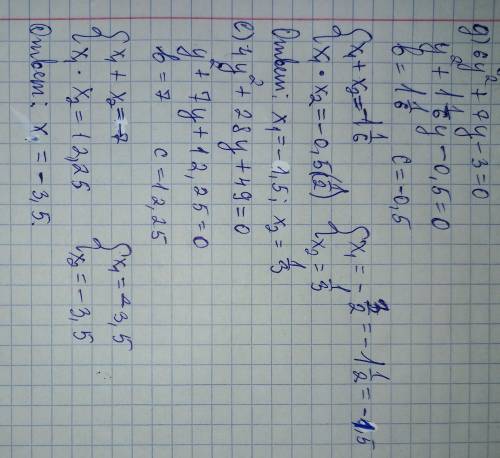 д) 6y² + 7y - 3 = 0
y² + 1 1/6 y - 0,5 = 0
b = 1 1/6 c = -0,5
{ x₁ + x₂ = -1 1/6 { x₁ = - 3/2 = -1 1/2 = -1,5
{ x₁ · x₂ = -0,5 (1/2) { x₂ = 1/3
Ответ: x₁ = -1,5; x₂ = 1/3
е) 4y² + 28y + 49 = 0
y² + 7y + 12,25 = 0
b = 7 c = 12,25
{ x₁ + x₂ = -7 { x₁ = -3,5
{ x₁ · x₂ = 12,25 { x₂ = -3,5
Ответ: x₁ = -3,5.